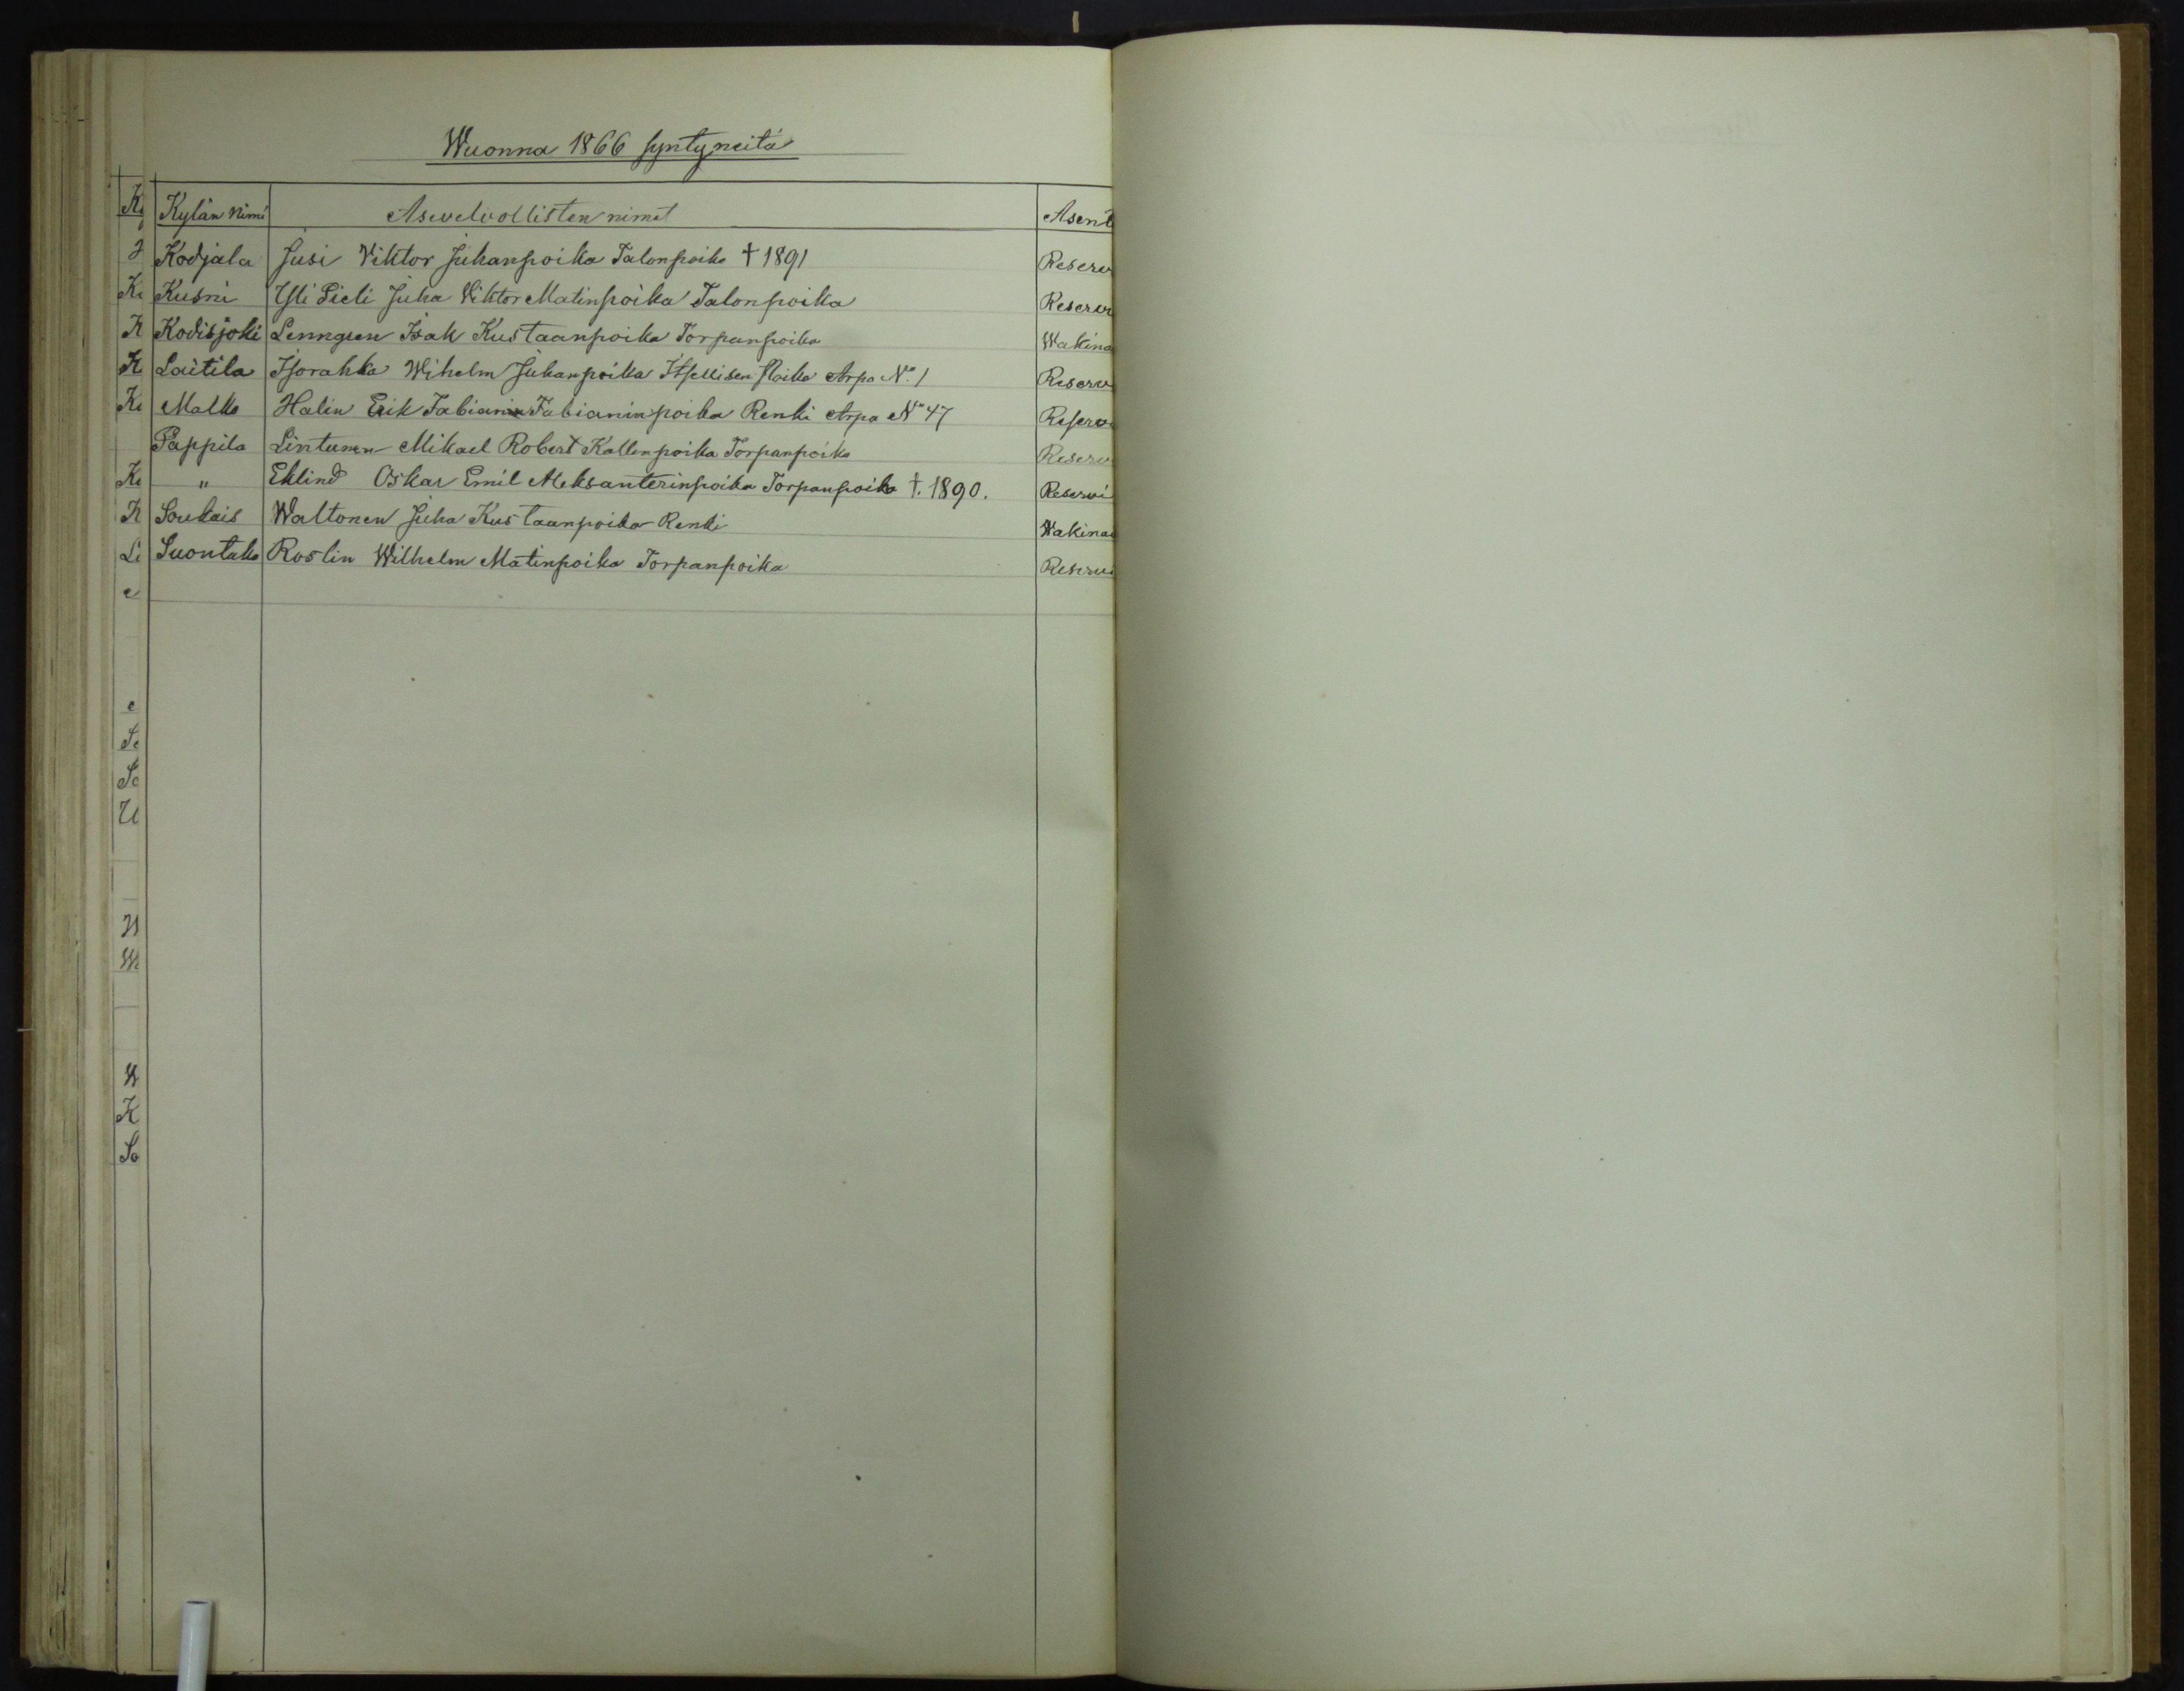 Wuonna 1866 syntyneitä
Kylän nimi Asevelvollisten nimet Asent
Kodjala Jusi Viktor Juhanpoika Talonpoika † 1891 Reserv
Kusni Yli Pieti Juha Viktor Matinpoika Talonpoika Reserv
Kodisjoki Lenngren Isak Kustaanpoika Torpanpoika Wakina
Laitila Isorahka Wihelm Juhanpoika Itsellisen Poika Arpa No. 1 Reserv
Malko Halin Erik Fabianin Fabianinpoika Renki Arpa No 47 Reserv
Pappila Lintunen Mikael Robert Kallenpoika Torpanpoika Reserv
" Eklind Oskar Emil Aleksanterinpoika Torpanpoika †. 1890. Reservi
Soukais Waltonen Juha Kustaanpoika Renki Wakina
Suontaka Roslin Wilhelm Matinpoika Torpanpoika Reserv